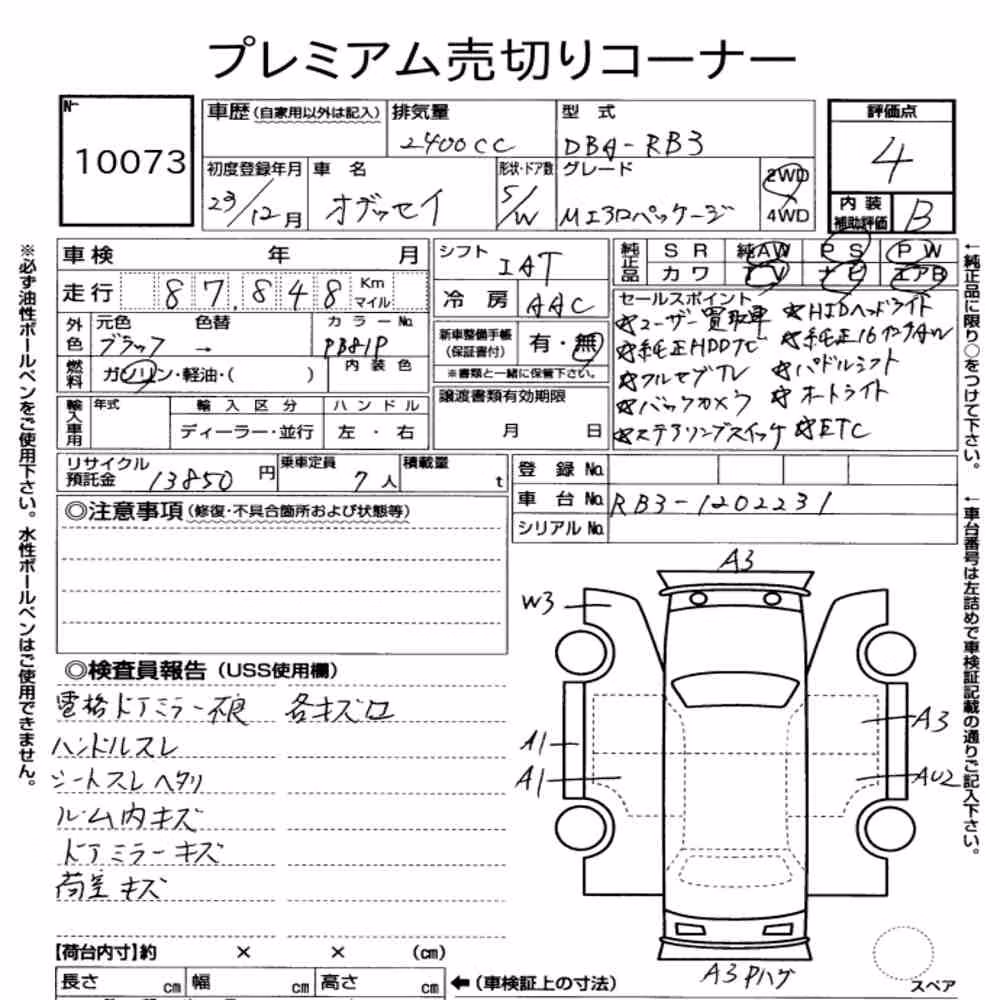 プレミアム売切りコーナー
No 10073
車歴(自家用以外は記入) 排気量 2400cc 型式 DBA-RB3 評価点 4
初度登録年月 23/12月 車名 オデッセイ 形状・ドア数 5/W グレード MX30パッケージ 2WD 4WD 内装補助評価 B
※必ず油性ボールペンをご使用下さい。水性ボールペンはご使用できません。
車検 年 月
走行 87,848 Km マイル
外色 元色 ブラック 色替 → カラーNo. PB81P
燃料 ガソリン・軽油・( ) 内装色
輸入車用 年式 輸入区分 ディーラー・並行 ハンドル 左・右
シフト IAT
冷房 AAC
新車整備手帳(保証書付) 有・無
※書類と一緒に保管下さい。
譲渡書類有効期限
月 日
純正品 SR 純AW PS PW
カワ TV ナビ エアB
セールスポイント
☆ユーザー買取車 ☆HIDヘッドライト
☆純正HDDナビ ☆純正16インチAW
☆フルセグTV ☆パドルシフト
☆バックカメラ ☆オートライト
☆ステアリングスイッチ ☆ETC
←純正品に限り○をつけて下さい。
リサイクル預託金 13850円 乗車定員 7人 積載量 t
登録No.
車台No. RB3-1202231
シリアルNo.
←車台番号は左詰めで車検証記載の通りご記入下さい。
◎注意事項(修復・不具合箇所および状態等)
◎検査員報告(USS使用欄)
電格ドアミラー不良 各キズ口
ハンドルスレ
シートスレヘタリ
ルーム内キズ
ドアミラーキズ
荷室キズ
A3
W3
A1
A1
A3
AU2
A3Pハゲ
スペア
【荷台内寸】約 × × (cm)
長さ cm 幅 cm 高さ cm ←(車検証上の寸法)